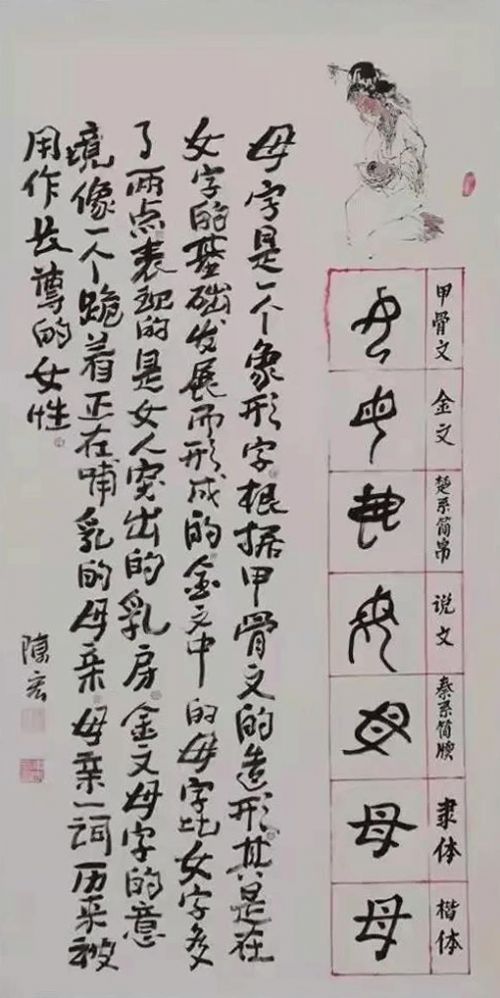 甲骨文
金文
楚系简帛
说文
秦系简牍
隶体
楷体
母
母
母
母
母
母
母
母字是一个象形字根据甲骨文的造形其是在
女字的基础发展而形成的金文中的母字比女字多
了两点表现的是女人突出的乳房金文母字的意
境像一个跪着正在哺乳的母亲母亲一词历来被
用作长尊的女性
陳宏